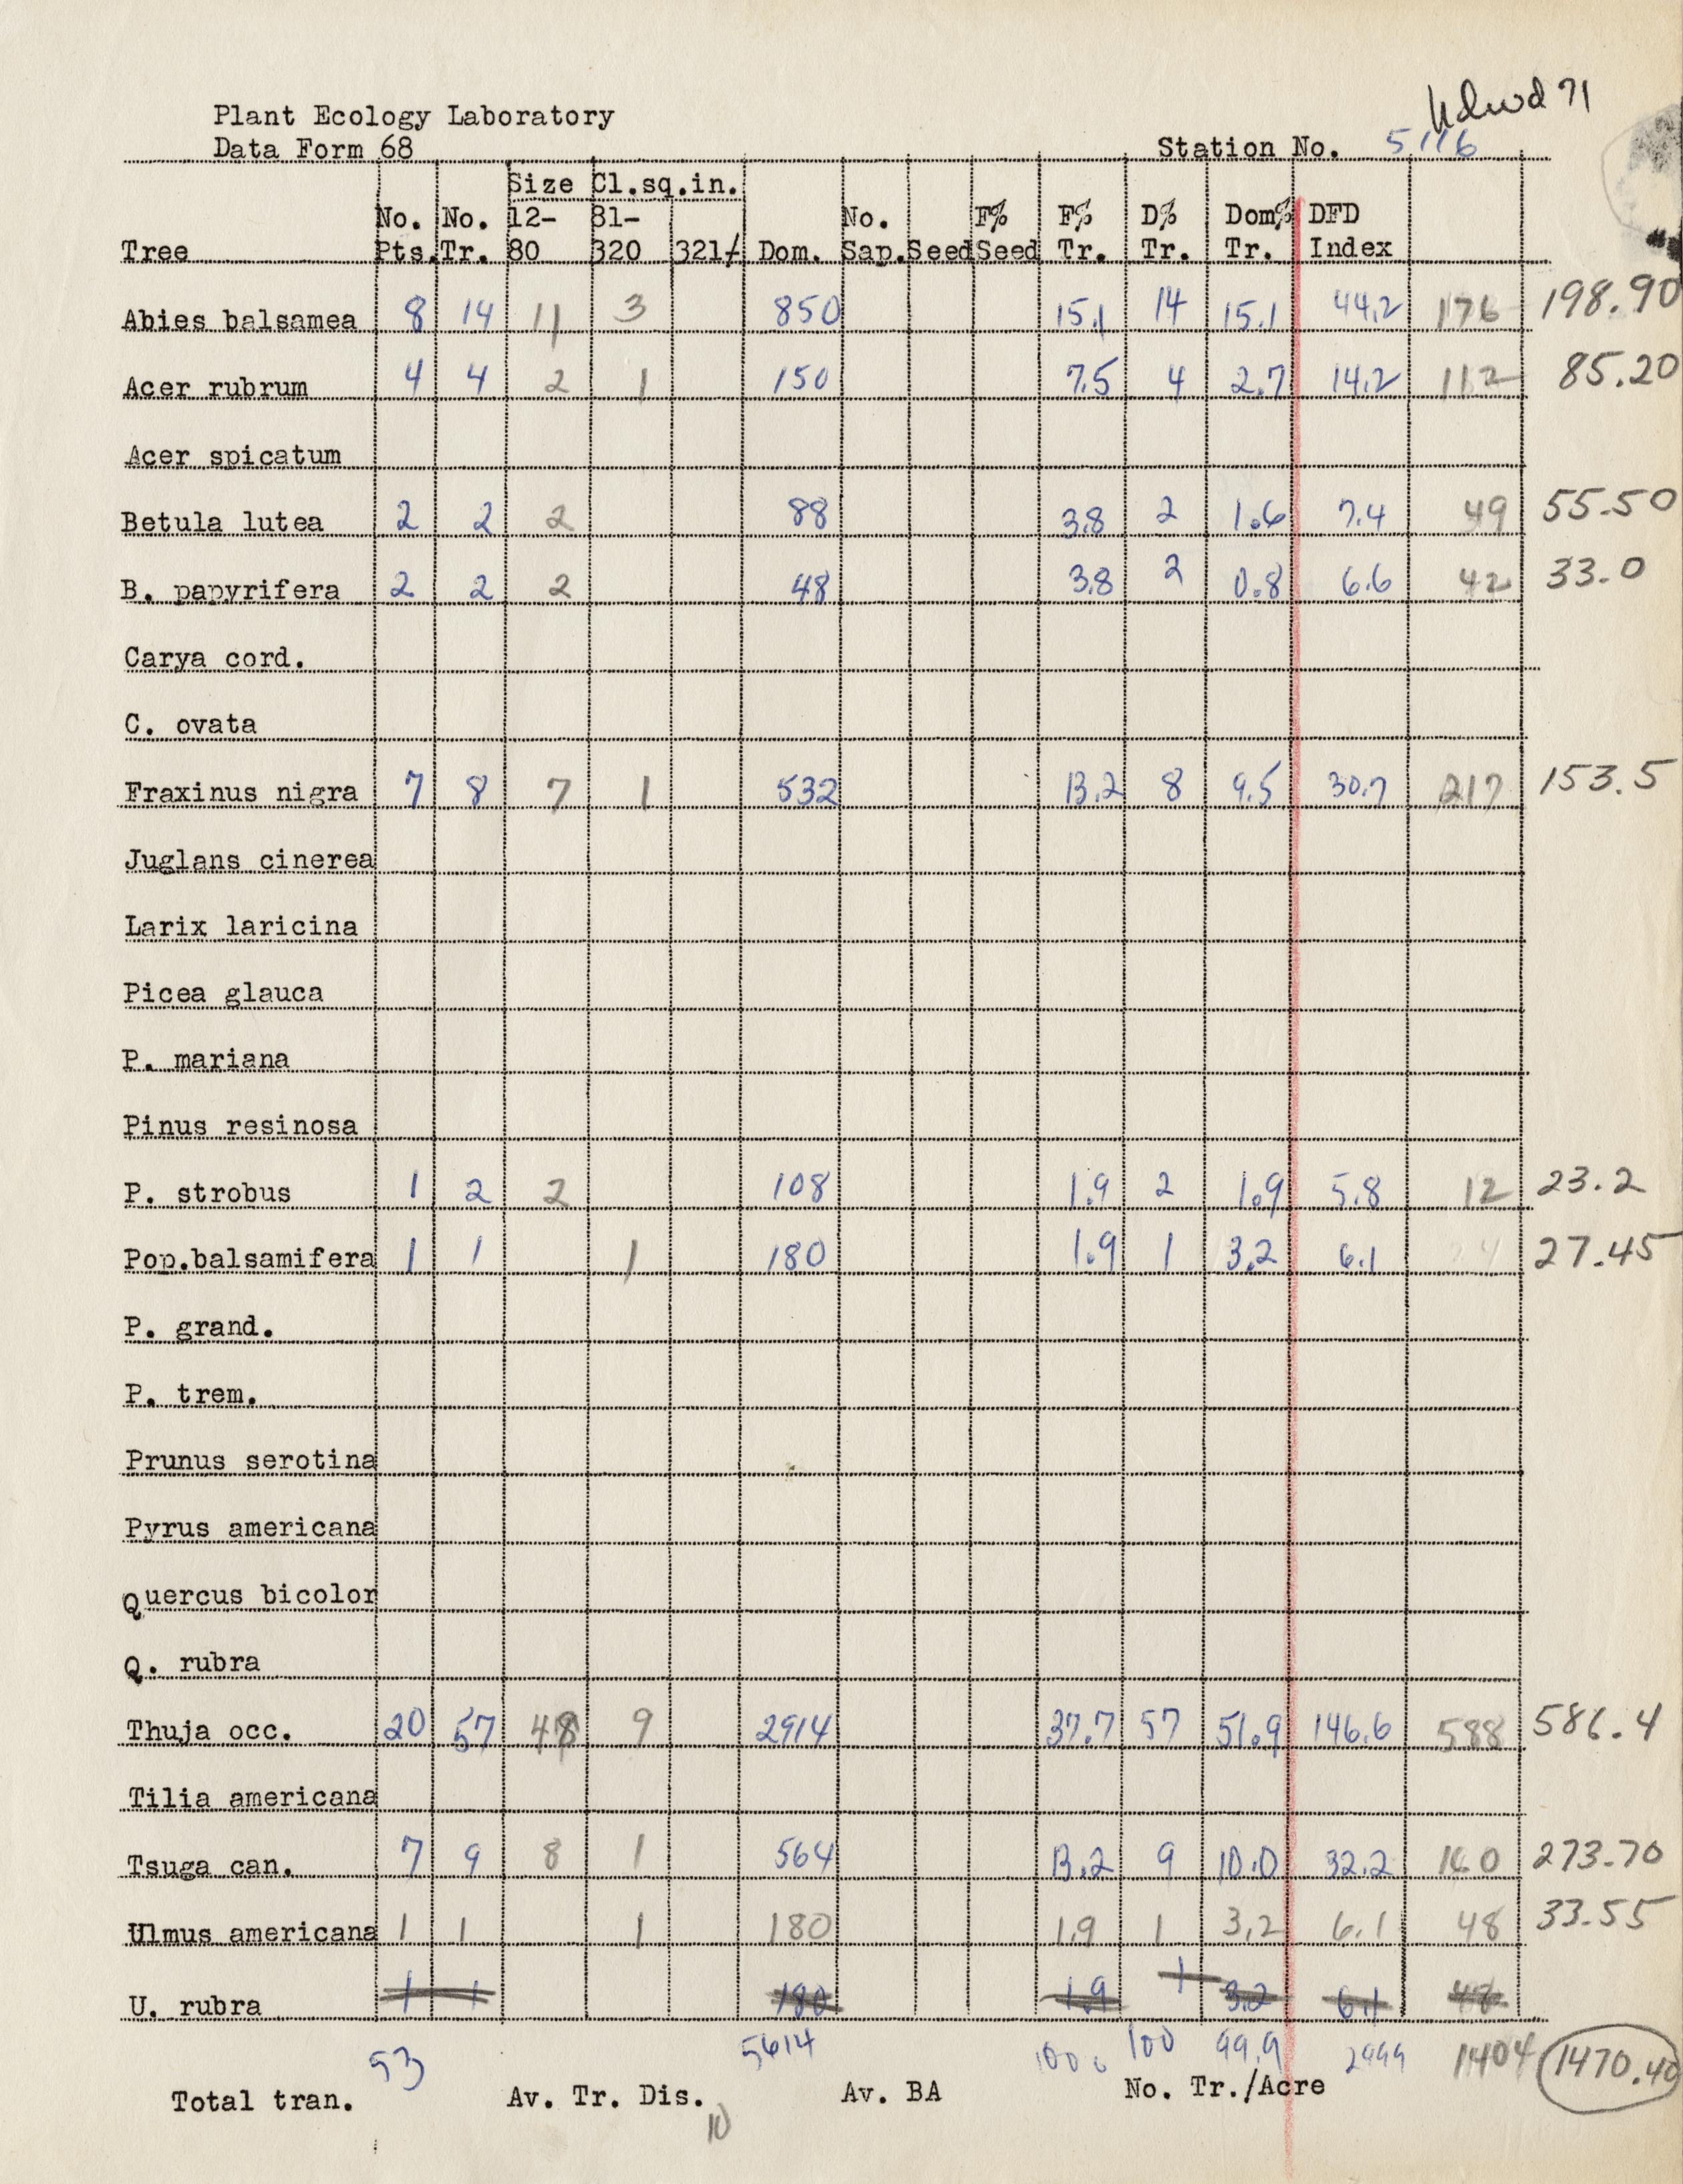 Hdwd 71
Plant Ecology Laboratory
Data Form 68 Station No. 5116
Size Cl.sq.in.
No. No. 12- 81- No. F% F% D% Dom% DFD
Tree Pts. Tr. 80 320 321/ Dom. Sap. Seed Seed Tr. Tr. Tr. Index
Abies balsamea 8 14 11 3 850 15.1 14 15.1 44.2 176 198.90
Acer rubrum 4 4 2 1 150 7.5 4 2.7 14.2 112 85.20
Acer spicatum
Betula lutea 2 2 2 88 3.8 2 1.6 7.4 49 55.50
B. papyrifera 2 2 2 48 3.8 2 0.8 6.6 42 33.0
Carya cord.
C. ovata
Fraxinus nigra 7 8 7 1 532 13.2 8 9.5 30.7 217 153.5
Juglans cinerea
Larix laricina
Picea glauca
P. mariana
Pinus resinosa
P. strobus 1 2 2 108 1.9 2 1.9 5.8 12 23.2
Pop.balsamifera 1 1 1 180 1.9 1 3.2 6.1 27.45
P. grand.
P. trem.
Prunus serotina
Pyrus americana
Quercus bicolor
Q. rubra
Thuja occ. 20 57 48 9 2914 37.7 57 51.9 146.6 588 586.4
Tilia americana
Tsuga can. 7 9 8 1 564 13.2 9 10.0 32.2 160 273.70
Ulmus americana 1 1 1 180 1.9 1 3.2 6.1 48 33.55
U. rubra 1 1 180 1.9 1 3.2 6.1 48
53 5614 100 99.9 2999 1404 1470.40
Total tran. Av. Tr. Dis. Av. BA No. Tr./Acre
10